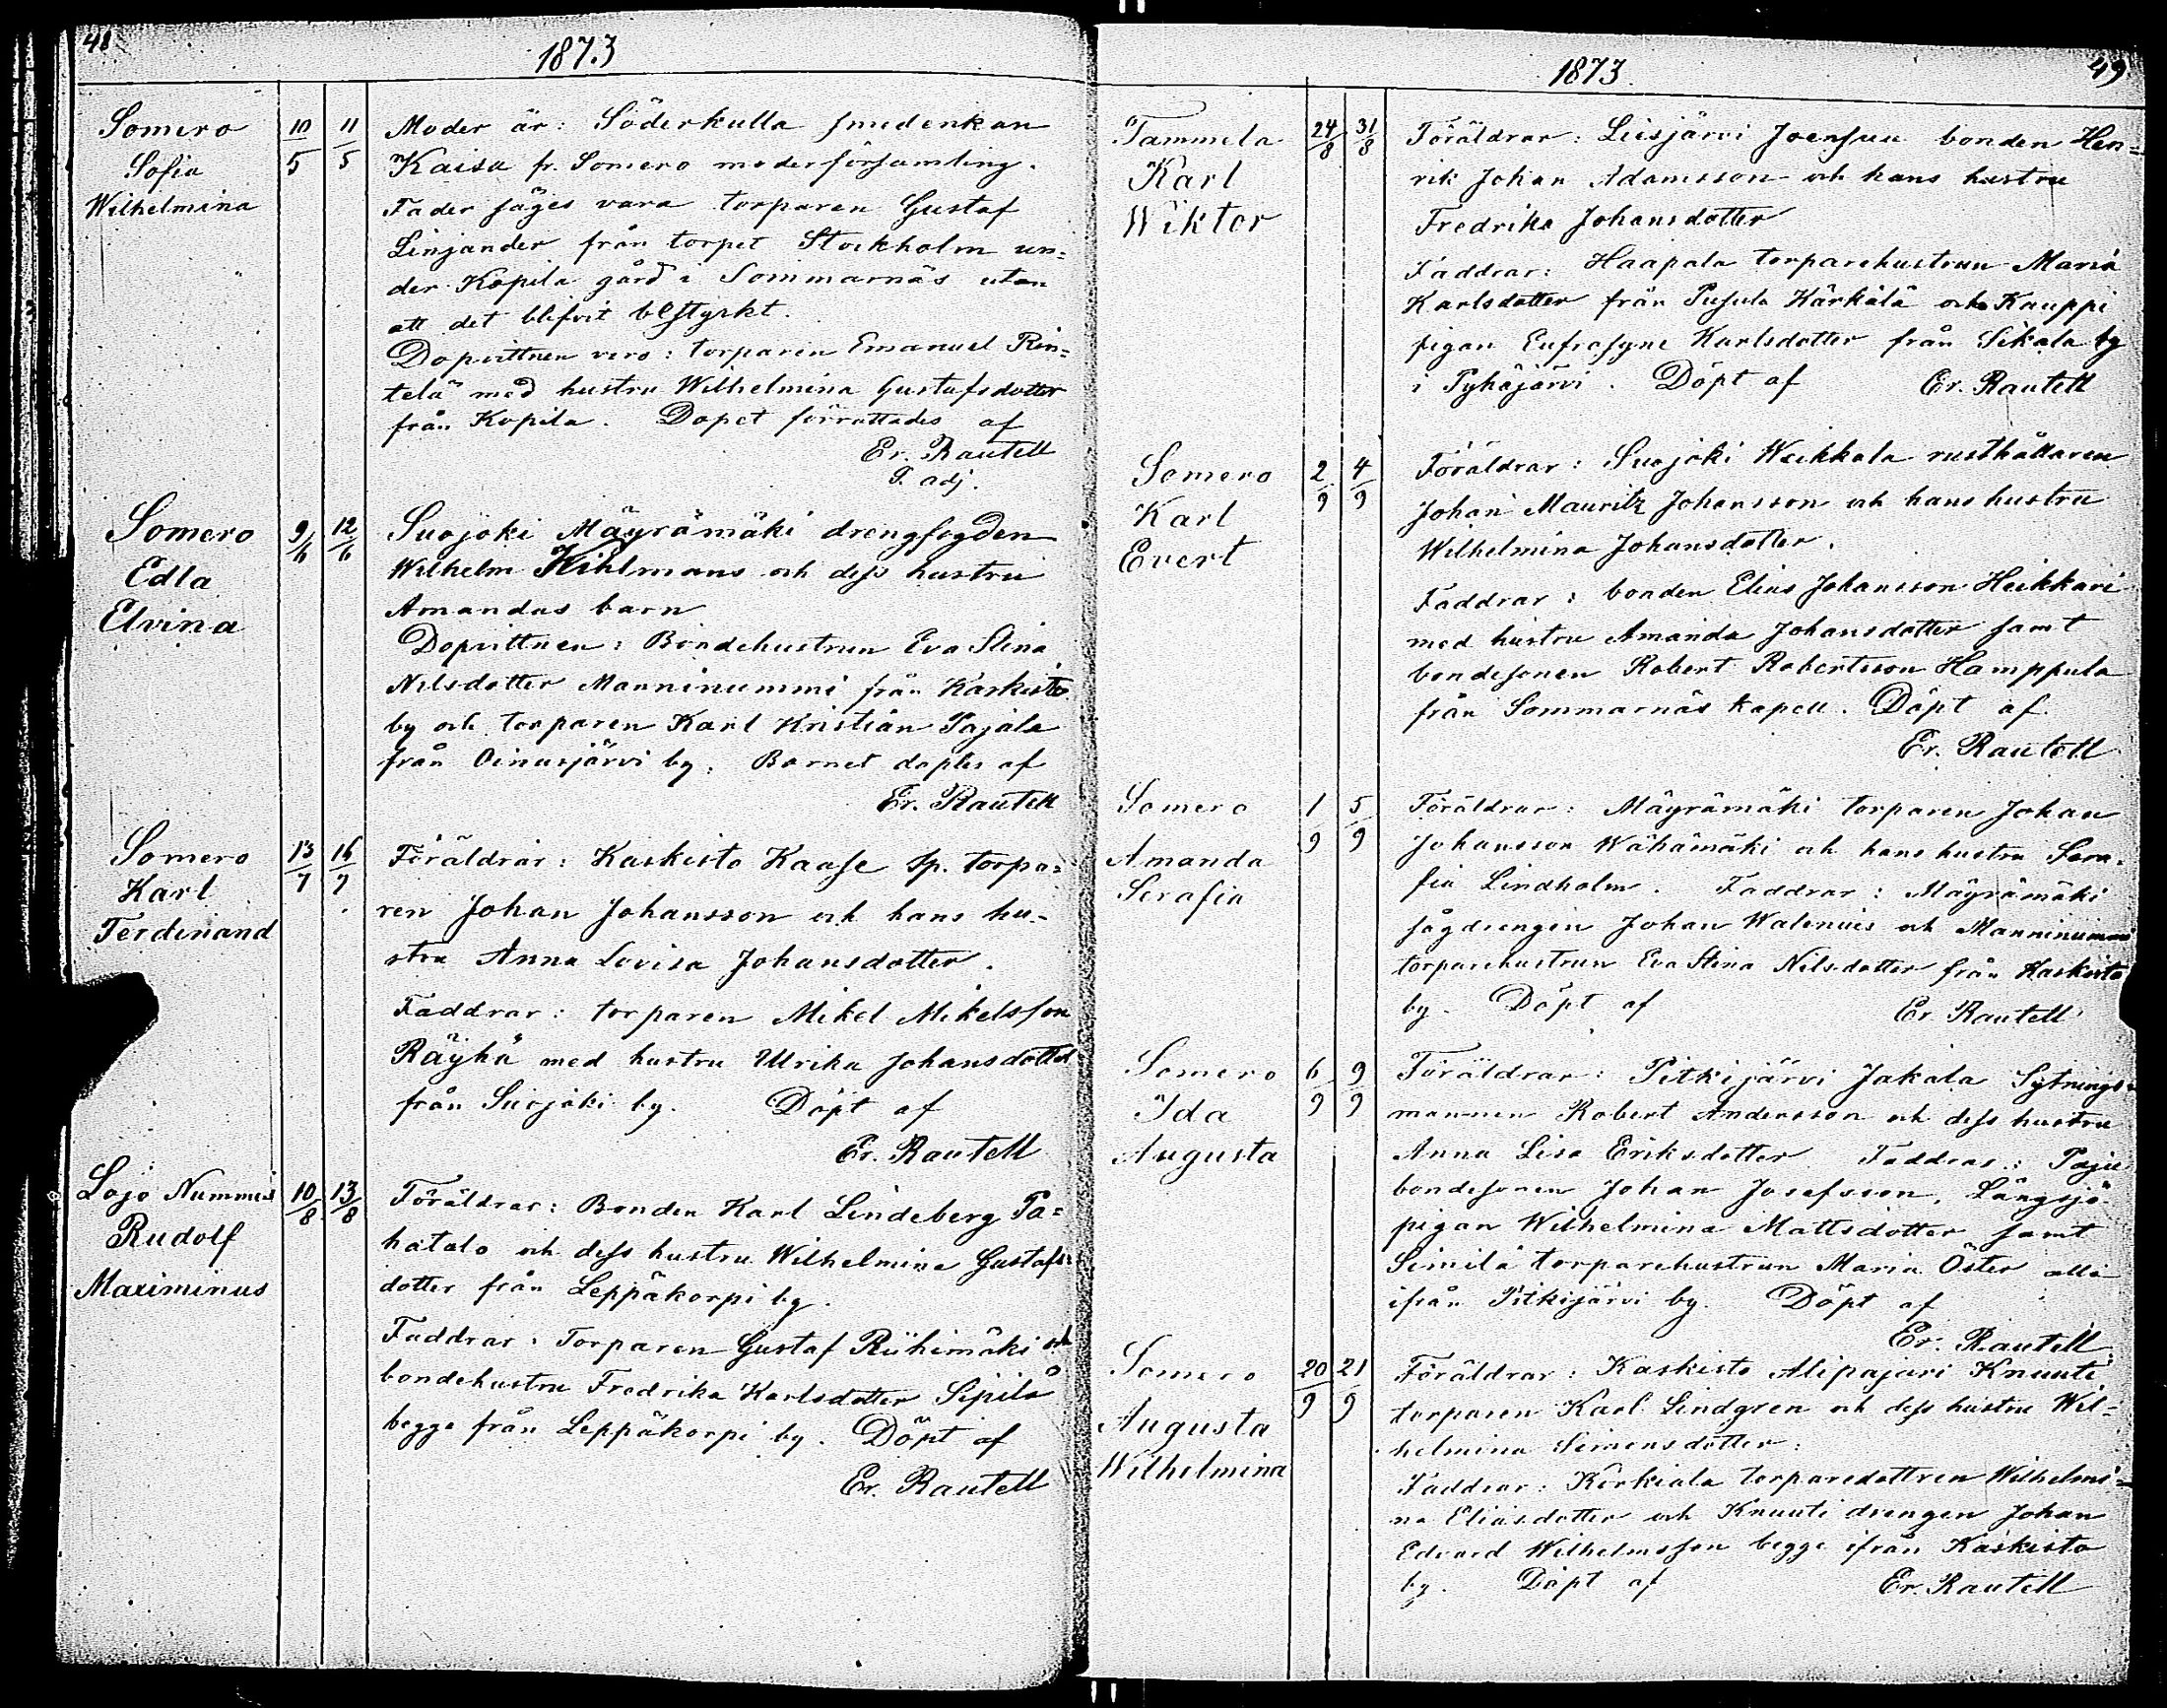 48
1873
Somero
Sofia
Wilhelmina
10/5 11/5
Moder är: Söderkulla smedenkan
Kaisa fr. Somero moderförsamling.
Fader säges vara torparen Gustaf
Linjander från torpet Stockholm un=
der Kopila gård i Sommarnäs utan
att det blifvit bestyrkt.
Dopvittnen voro: torparen Emanuel Rin=
telä med hustru Wilhelmina Gustafsdotter
från Kopila. Dopet förrättades af
Er. Rautell
P. adj.
Somero
Edla
Elvina
9/6 12/6
Suojoki Mäyrämäki drengfogden
Wilhelm Kihlmans och dess hustru
Amandas barn
Dopvittnen: Bondehustrun Eva Stina
Nilsdotter Manninummi från Kaskisto
by och torparen Karl Kristian Pajala
från Oinasjärvi by. Barnet döptes af
Er. Rautell
Somero
Karl
Ferdinand
13/7 16/7
Föräldrar: Kaskisto Kaase sp. torpa=
ren Johan Johansson och hans hu-
stru Anna Lovisa Johansdotter.
Faddrar: torparen Mikel Mikelsson
Räyhä med hustru Ulrika Johansdotter
från Suojoki by. Döpt af
Er. Rautell
Lojo Nummis
Rudolf
Maximinus
10/8 13/8
Föräldrar: Bonden Karl Lindeberg Pa=
hatalo och dess hustru Wilhelmina Gustafs
dotter från Leppäkorpi by.
Faddrar: Torparen Gustaf Riihimäki och
bondehustru Fredrika Karlsdotter Sipilä
begge från Leppäkorpi by. Döpt af
Er. Rautell
1873.
49
Tammela
Karl
Wiktor
24/8 31/8
Föräldrar: Liesjärvi Joensuu bonden Hen=
rik Johan Adamsson och hans hustru
Fredrika Johansdotter
Faddrar: Haapala torparehustrun Maria
Karlsdotter från Pusula Kärkälä och Kauppi
pigan Eufrosyne Karlsdotter från Sikala by
i Pyhäjärvi. Döpt af Er. Rautell
Somero
Karl
Evert
2/9 4/9
Föräldrar: Suojoki Weikkala rusthållaren
Johan Mauritz Johansson och hans hustru
Wilhelmina Johansdotter.
Faddrar: bonden Elias Johansson Heikkari
med hustru Amanda Johansdotter samt
bondesonen Robert Robertsson Hamppula
från Sommarnäs kapell. Döpt af
Er. Rautell
Somero
Amanda
Serafia
1/9 5/9
Föräldrar: Mäyrämäki torparen Johan
Johansson Wähämäki och hans hustru Sera=
fia Lindholm. Faddrar: Mäyrämäki
sågdrengen Johan Walenius och Manninummi
torparehustrun Eva Stina Nilsdotter från Kaskisto
by. Döpt af Er. Rautell
Somero
Ida
Augusta
6/9 9/9
Föräldrar: Pitkijärvi Jakala Sytnings=
mannen Robert Andersson och dess hustru
Anna Lisa Eriksdotter Faddrar: Paju
bondesonen Johan Josefsson, Långsjö
pigan Wilhelmina Mattsdotter samt
Simila torparehustrun Maria Öster alla
ifrån Pitkijärvi by. Döpt af
Er. Rautell
Somero
Augusta
Wilhelmina
20/9 21/9
Föräldrar: Kaskisto Alipajari Knuuti
torparen Karl Lindgren och dess hustru Wil=
helmina Simonsdotter.
Faddrar: Kirkiala torparedottren Wilhelmi=
na Eliasdotter och Knuuti drengen Johan
Edvard Wilhelmsson begge ifrån Kaskisto
by. Döpt af Er. Rautell